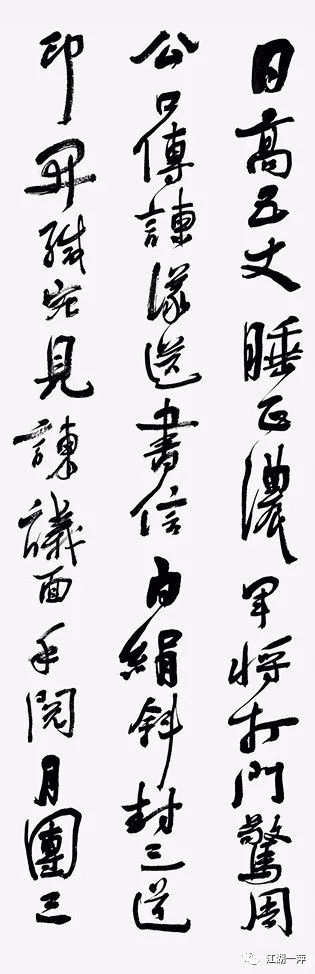 日高五丈睡正濃軍將打門驚周
公口傳諫議送書信白絹斜封三道
印開緘宛見諫議面手閱月團三
江湖一萍